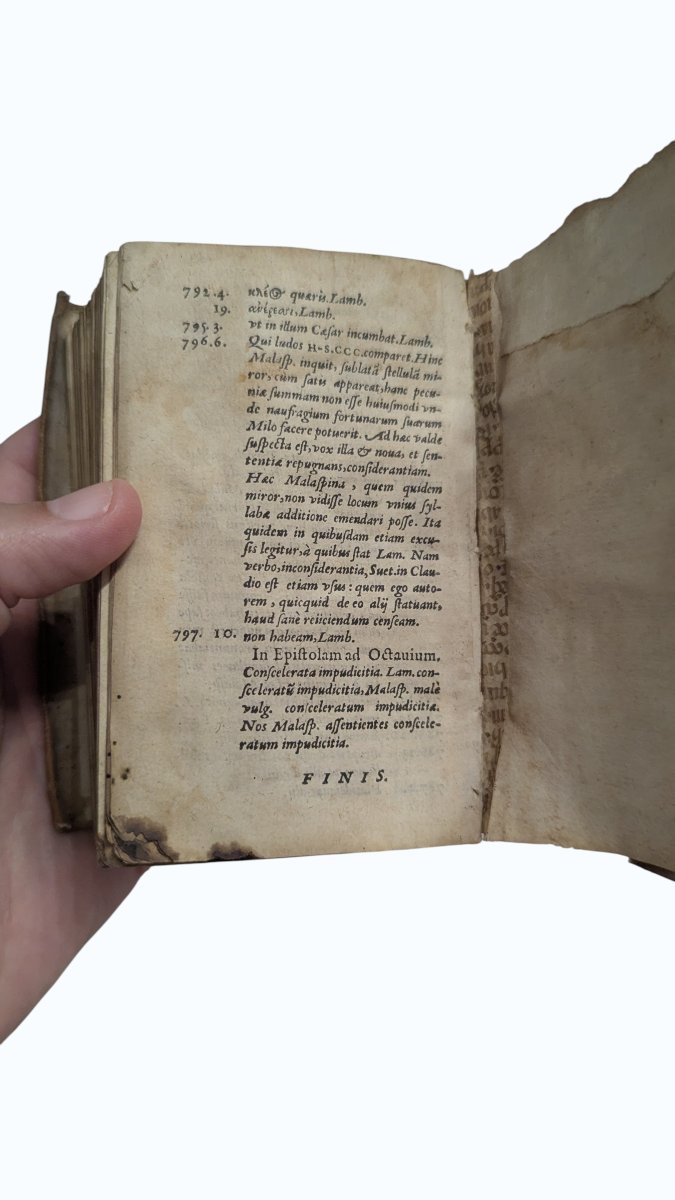 792.4. κλέος quæris.Lamb.
19. Lamb.
795.3. vt in illum Cæsar incumbat.Lamb.
796.6. Qui ludos H-S.CCC.comparet.Hinc
Malaſp. inquit, ſublatâ ſtellulâ mi-
ror, cùm ſatis appareat, hanc pecu-
niæ ſummam non eſſe huiuſmodi vn-
de naufragium fortunarum ſuarum
Milo facere potuerit. Ad hæc valde
ſuſpecta eſt, vox illa & noua, et ſen-
tentiæ repugnans, conſiderantiam.
Hæc Malaſpina, quem quidem
miror, non vidiſſe locum vnius ſyl-
labæ additione emendari poſſe. Ita
quidem in quibuſdam etiam excu-
ſis legitur, à quibus ſtat Lam. Nam
verbo, inconſiderantia, Suet.in Clau-
dio eſt etiam vſus: quem ego auto-
rem, quicquid de eo alij ſtatuant,
haud ſanè reiiciendum cenſeam.
797. 10. non habeam, Lamb.
In Epiſtolam ad Octauium.
Conſcelerata impudicitia. Lam.con-
ſceleratū impudicitia, Malaſp. malè
vulg. conſceleratum impudicitiæ.
Nos Malaſp. aſſentientes conſcele-
ratum impudicitia.
FINIS.